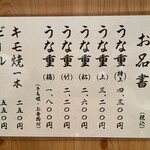 お品書
(税込)
うな重(特上)四、三〇〇
うな重(上)三、二〇〇
うな重(松)二、六〇〇
うな重(竹)二、二〇〇
うな重(梅)一、八〇〇円
(きも吸・お新香付)
キモ焼一本 五五〇円
ビール 五五〇円